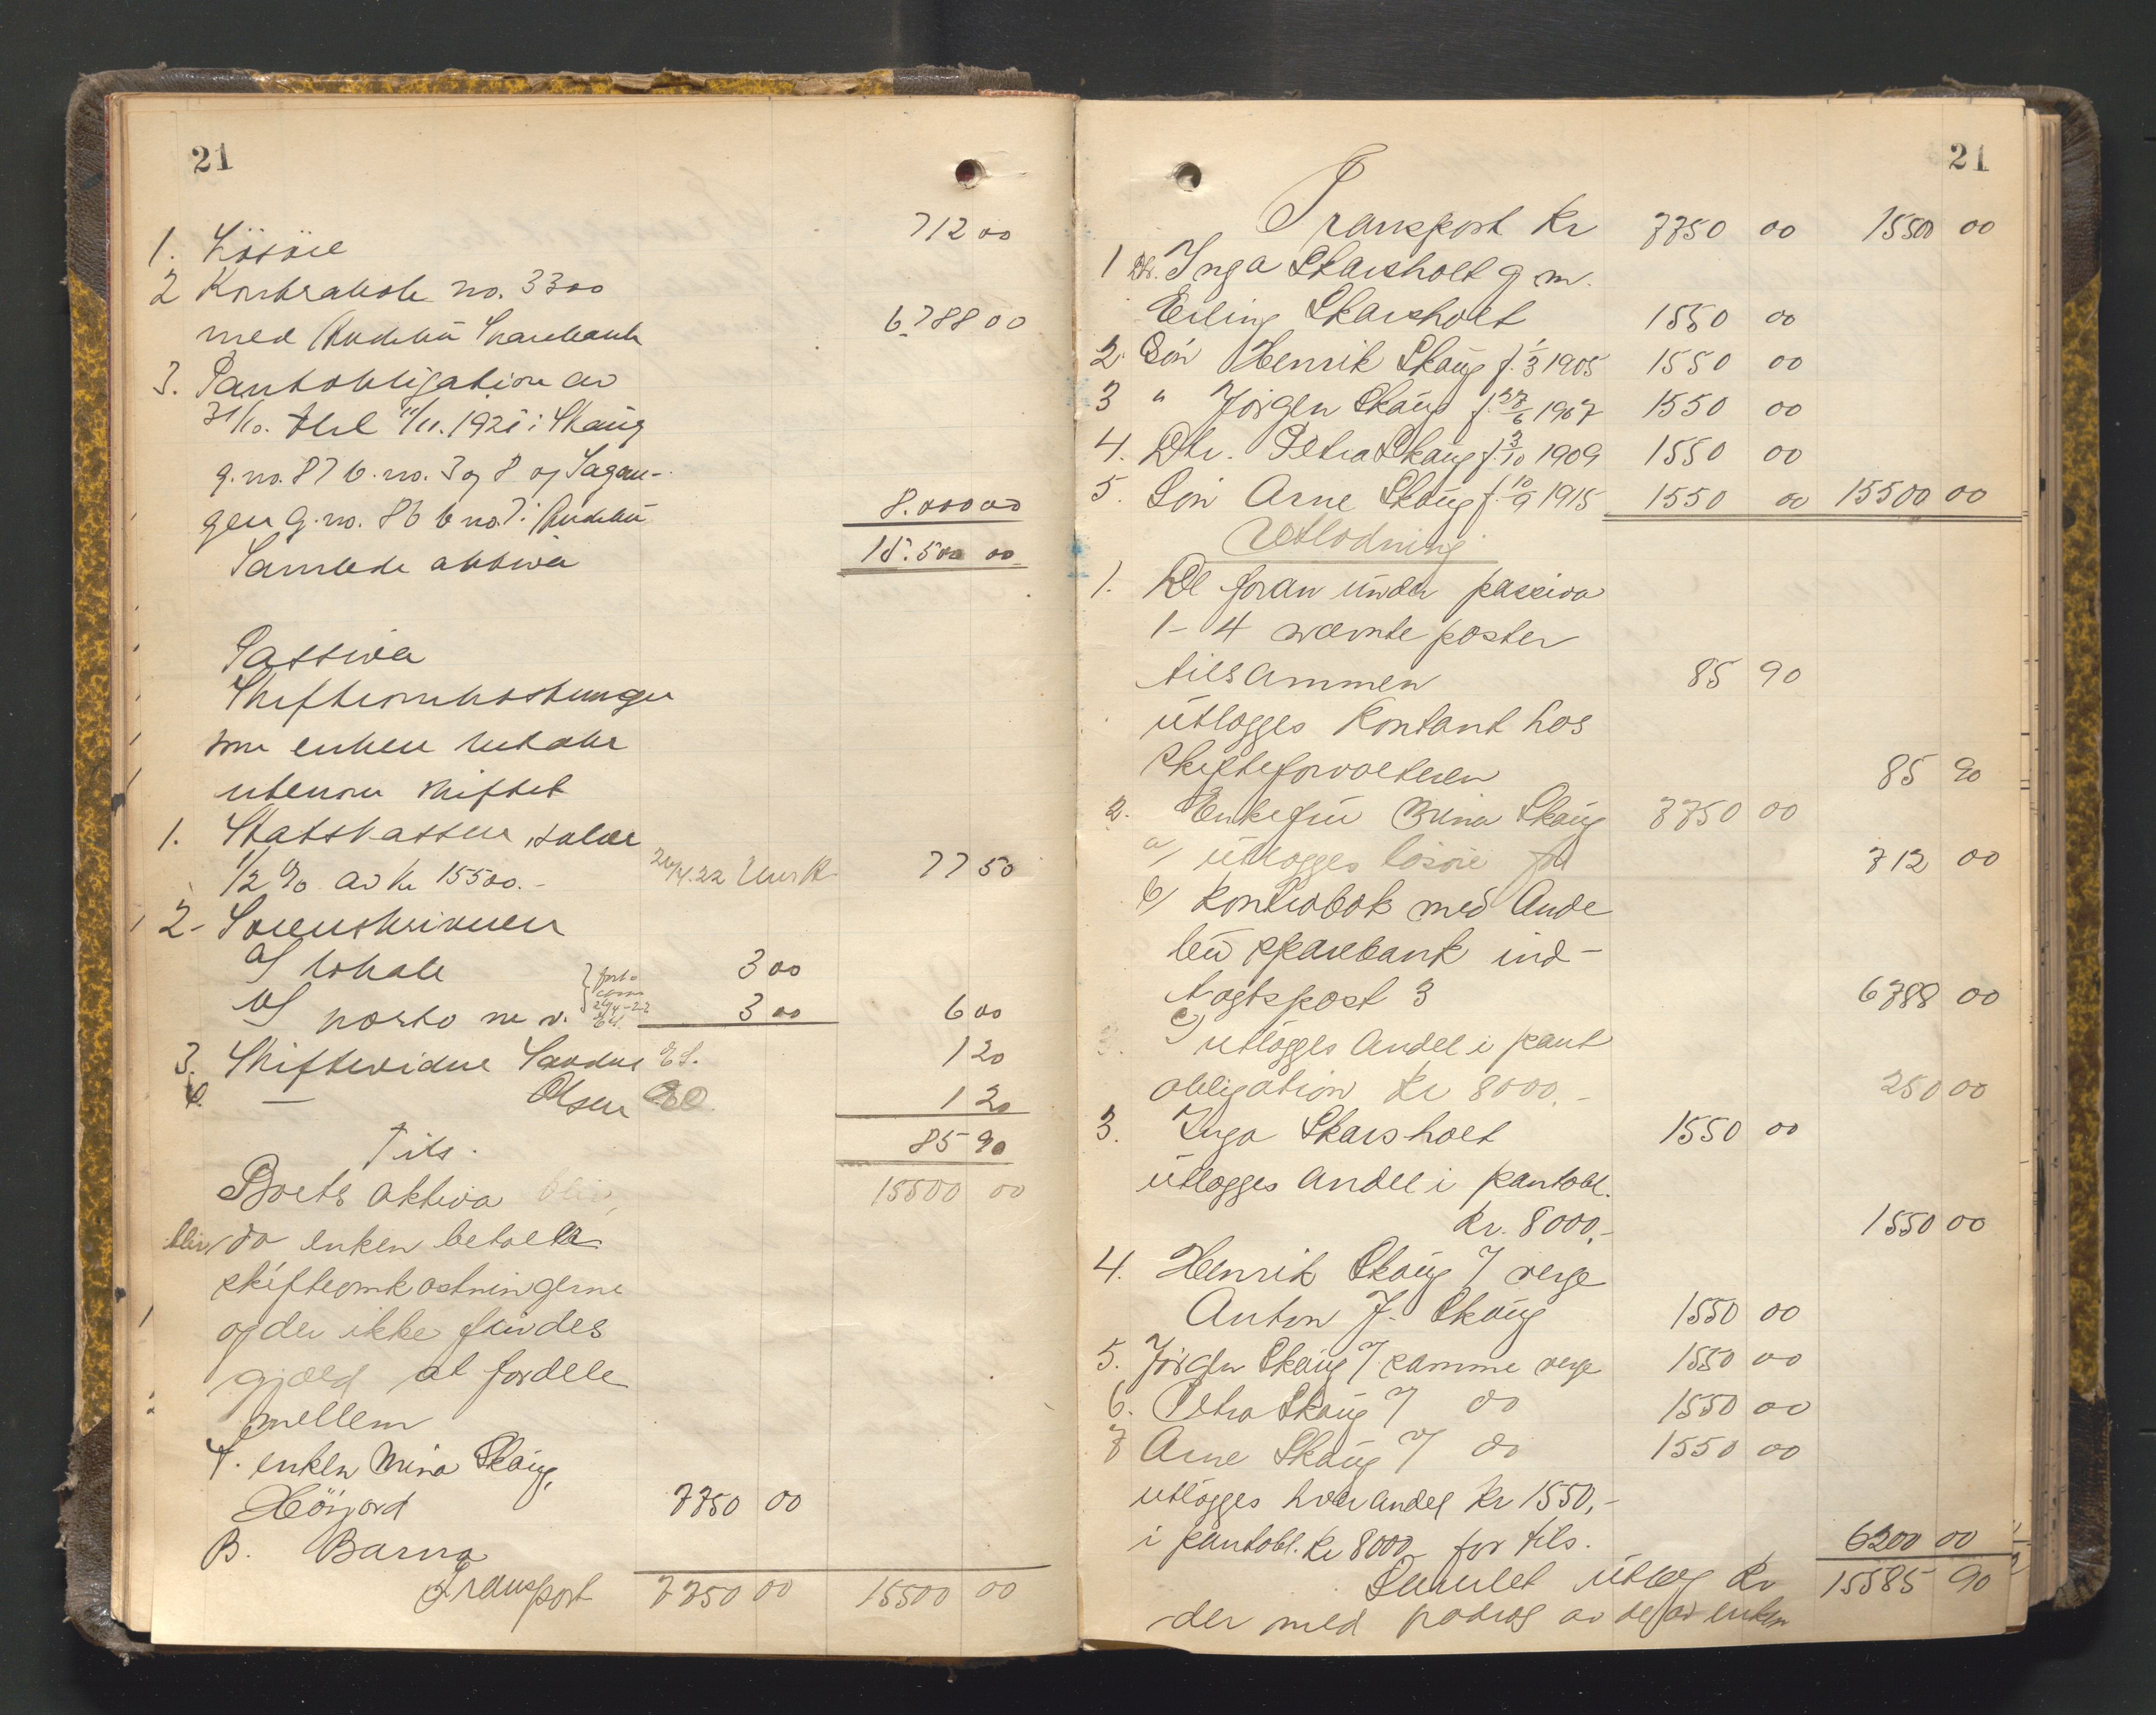 21
1. Lösöre 712 00
2 Kontrabok no. 3300
med Andebu Sparebank 6.788 00
3. Pantobligation av
31/10. thl 11/11. 1921 i Skaug
g. no. 87 b. no. 3 og 8 og Sagan-
gen g. no. 86 b no. 7 i Andebu 8.000 00
Samlede aktiva 15.500 00
Passiva
Skifteomkostninger
som enken betaler
utenom skiftet
1. Statskassen, salær
1/2 % av kr 15500.- 77 50
2- Sorenskriveren
a/ lokale 3 00
b/ porto m. v. 3 00 6 00
3. Skiftevidne 1 20
4. — Olsen 1 20
Tils. 85 90
Boets aktiva 15500 00
blir, da enken betaler
skifteomkostningerne
og der ikke findes
gjæld at fordele
mellem
A. enken Mina Skaug,
Höijord 7750 00
B. Barna
Transport 7750 00 15500 00
21
Transport kr 7750 00 15500 00
1 Dtr. Inga Skarsholt g. m.
Erling Skarsholt 1550 00
2. Sön Henrik Skaug f. 1/3 1905 1550 00
3 " Jörgen Skaug f. 27/6 1907 1550 00
4. Dtr. Petra Skaug f. 3/10 1909 1550 00
5. Sön Arne Skaug f. 10/9 1915 1550 00 15500 00
Utlodning
1. De foran under passiva
1-4 nævnte poster
tilsammen 85 90
utlægges kontant hos
skifteforvalteren 85 90
2. Enkefru Mina Skaug 7750 00
a/ utlægges lösöre for 712 00
b/ kontrabok med Ande
bu sparebank ind-
tægtspost 3 6788 00
c/ utlægges andel i pant
obligation kr 8000.- 250 00
3. Inga Skarsholt 1550 00
utlægges andel i pantobl.
kr. 8000.- 1550 00
4. Henrik Skaug / verge
Anton J. Skaug 1550 00
5. Jörgen Skaug / samme verge 1550 00
6. Petra Skaug / do 1550 00
7 Arne Skaug / do 1550 00
utlægges hver andel kr 1550,-
i pantobl. kr 8000 for tils. 6200 00
Samlet utlæg kr 15585 90
der med fradrag av de av enken